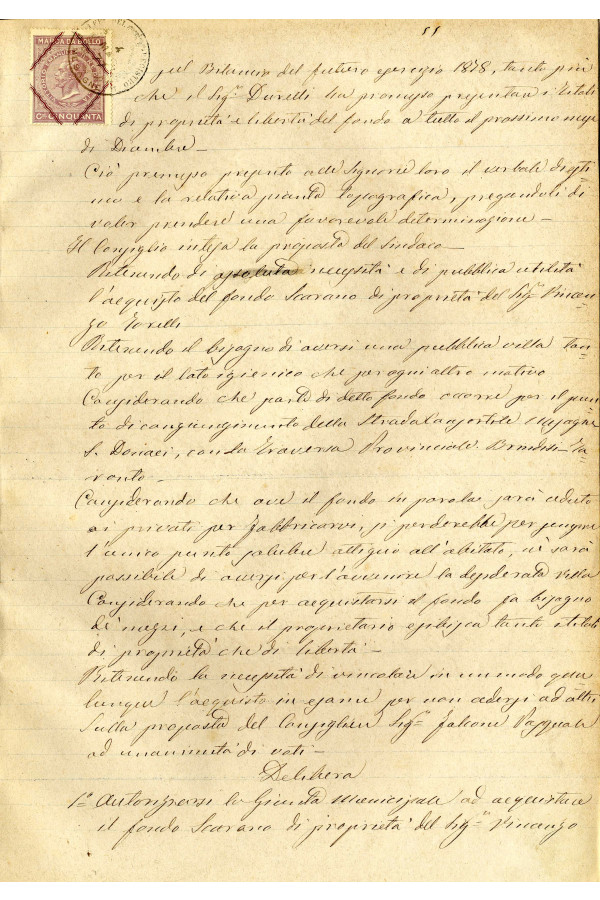 55
MARCA DA BOLLO
Cmi CINQUANTA
pel Bilancio del futuro esercizio 1878, tanto più
che il Sigr Durelli ha promesso presentare i titoli
di proprietà e libertà del fondo a tutto il prossimo mese
di Dicembre _
Ciò premesso presento alle Signorie loro il verbale di esti
mo e la relativa pianta topografica, pregandoli di
voler prendere una favorevole determinazione _
Il Consiglio intesa la proposta del Sindaco _
Ritenendo di assoluta necessità e di pubblica utilità
l'acquisto del fondo Scarano di proprietà del Sigr Vincen
zo
Ritenendo il bisogno di aversi una pubblica villa tan
to per il lato igienico che per ogni altro motivo
Considerando che parte di detto fondo occorre per il pun
to di congiungimento della Strada Carrozzabile Mesagne
S. Donaci, con la Traversa Provinciale Brindisi Ta
ranto _
Considerando che ove il fondo in parola sarà ceduto
ai privati per fabbricarvi, si perderebbe per sempre
l'unico punto salubre attiguo all'abitato, nè sarà
possibile di aversi per l'avvenire la desiderata villa
Considerando che per acquistarsi il fondo fa bisogno
de' mezzi, e che il proprietario esibisca tanti titoli
di proprietà che di libertà _
Ritenendo la necessità di vincolare in un modo qua
lunque l'acquisto in esame per non cedersi ad altri
Sulla proposta del Consigliere Sigr Falcone Pasquale
ad unanimità di voti _
Delibera
1o Autorizzarsi la Giunta Municipale ad acquistare
il fondo Scarano di proprietà del Sigr Vincenzo